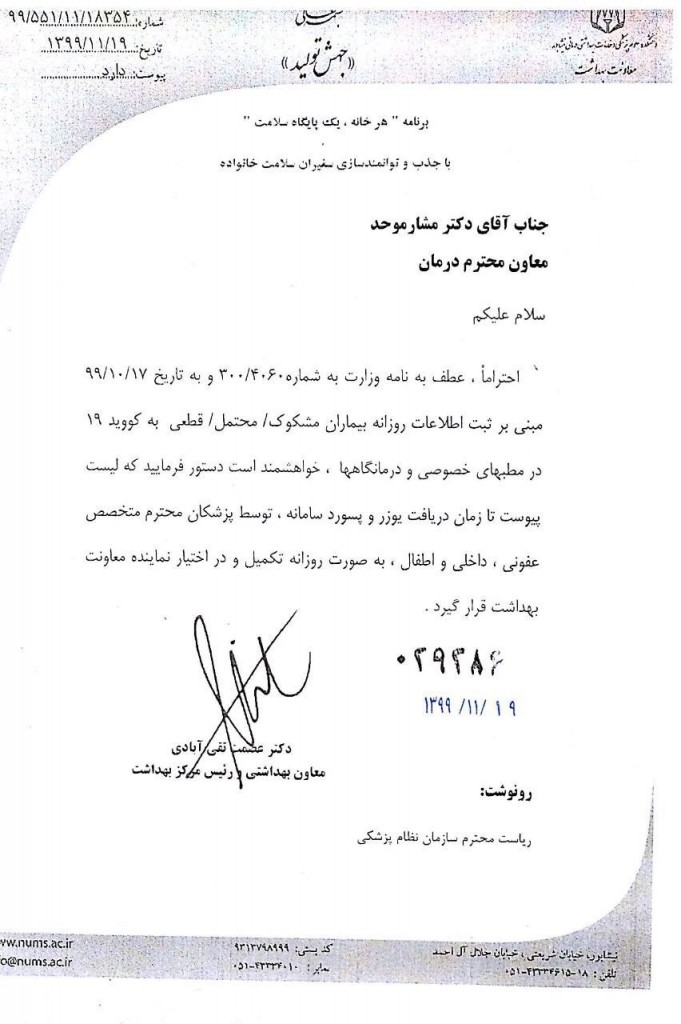 شماره: ۹۹/۵۵۱/۱۱/۱۸۳۵۴
تاریخ: ۱۳۹۹/۱۱/۱۹
پیوست: دارد
«جهش تولید»
معاونت بهداشت
برنامه " هر خانه ، یک پایگاه سلامت "
با جذب و توانمندسازی سفیران سلامت خانواده
جناب آقای دکتر مشارموحد
معاون محترم درمان
سلام علیکم
احتراماً ، عطف به نامه وزارت به شماره ۳۰۰/۴۰۶۰ و به تاریخ ۹۹/۱۰/۱۷
مبنی بر ثبت اطلاعات روزانه بیماران مشکوک/ محتمل/ قطعی به کووید ۱۹
در مطبهای خصوصی و درمانگاهها ، خواهشمند است دستور فرمایید که لیست
پیوست تا زمان دریافت یوزر و پسورد سامانه ، توسط پزشکان محترم متخصص
عفونی ، داخلی و اطفال ، به صورت روزانه تکمیل و در اختیار نماینده معاونت
بهداشت قرار گیرد .
۰۲۹۲۸۶
۱۳۹۹/۱۱/۱۹
دکتر عصمت تقی آبادی
معاون بهداشتی و رئیس مرکز بهداشت
رونوشت:
ریاست محترم سازمان نظام پزشکی
نیشابور، خیابان شریعتی ، خیابان جلال آل احمد
تلفن : ۱۸-۰۵۱-۴۳۳۳۴۶۱۵
کد پستی: ۹۳۱۳۷۹۸۹۹۹
نمابر: ۰۵۱-۴۳۳۳۴۰۱۰
ww.nums.ac.ir
o@nums.ac.ir